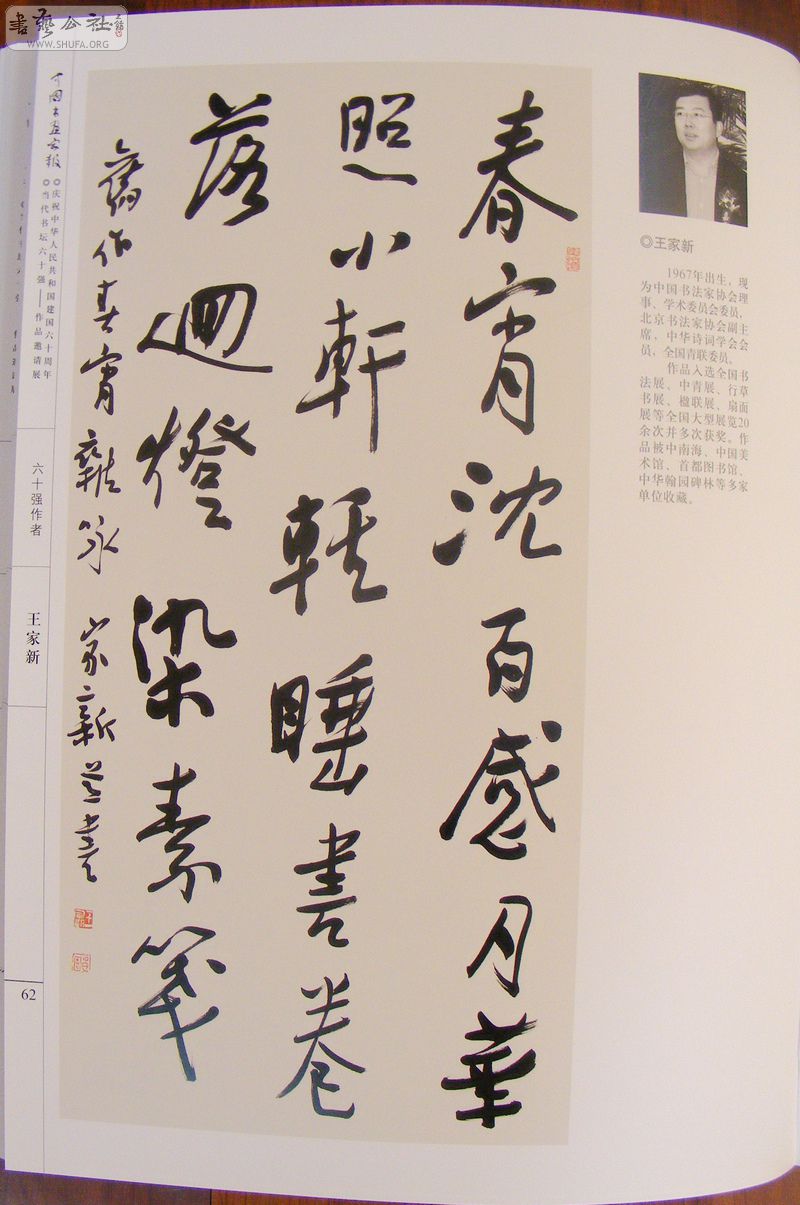 書藝公社
WWW.SHUFA.ORG
中国书画家报
◎庆祝中华人民共和国建国六十周年
◎当代书坛六十强——作品邀请展
六十强作者
王家新
62
春宵沈百感月華
照小軒輕睡書卷
落迴燈染素箋
舊作春宵雜咏 家新並書
◎王家新
1967年出生，现
为中国书法家协会理
事、学术委员会委员，
北京书法家协会副主
席，中华诗词学会会
员，全国青联委员。
作品入选全国书
法展、中青展、行草
书展、楹联展、扇面
展等全国大型展览20
余次并多次获奖。作
品被中南海、中国美
术馆、首都图书馆、
中华翰园碑林等多家
单位收藏。